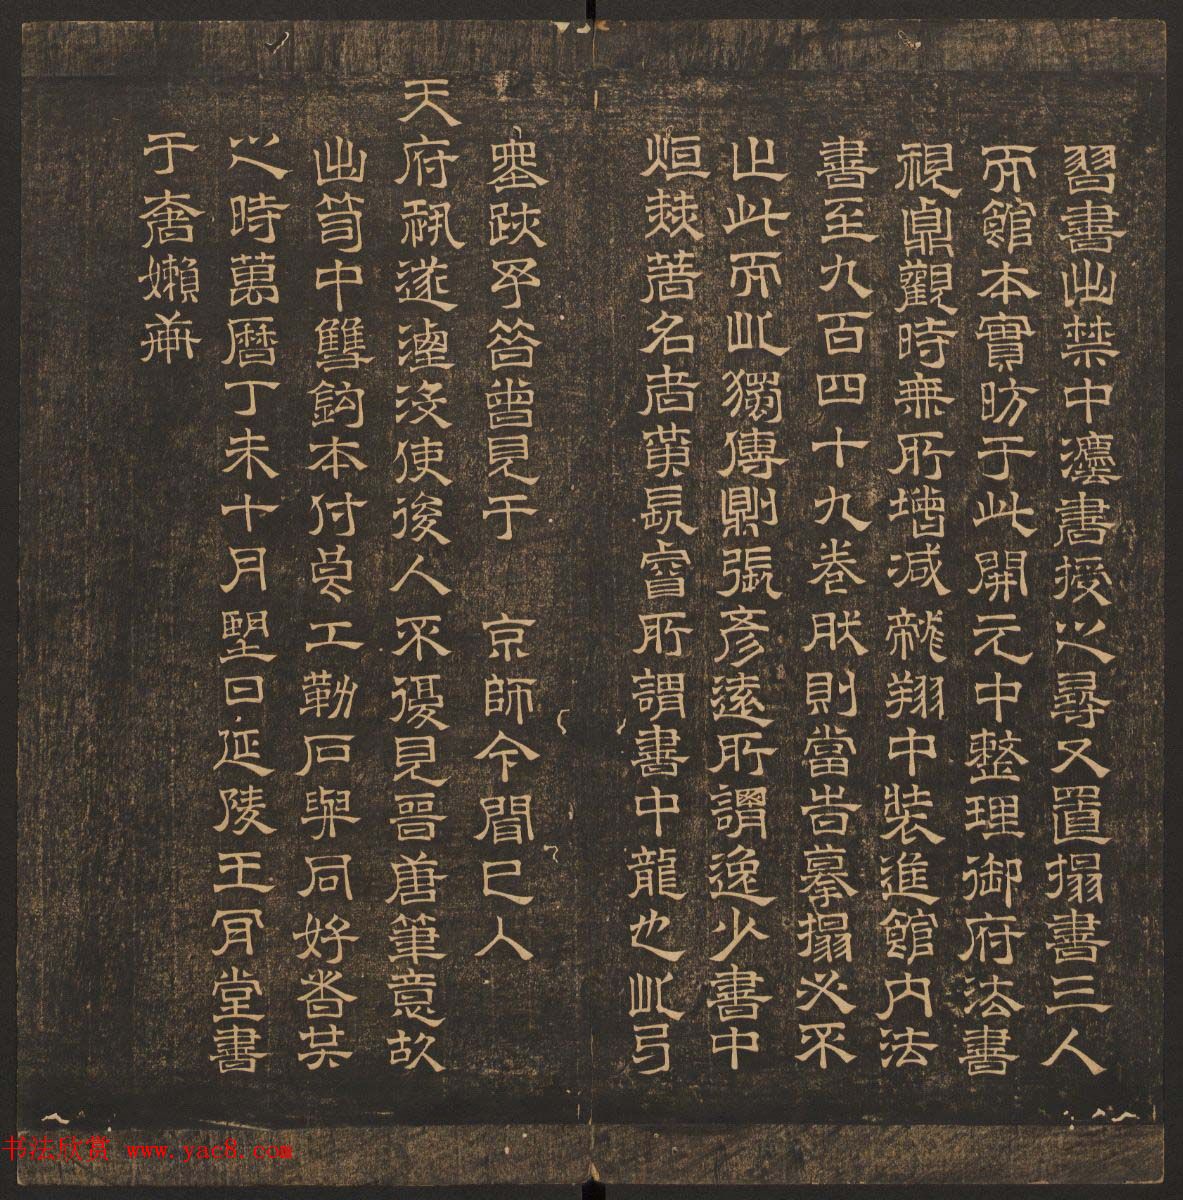 習書出禁中灋書授之尋又置搨書三人
而館本實昉于此開元中整理御府法書
視鼎觀時無所增減龍翔中裝進館內法
書至九百四十九卷然則當告摹搨必不
止此而此獨傳鼎張彥遠所謂逸少書中
烜赫著名者黃長睿所謂書中龍也此弓
塞跋予曾見于 京師今聞已人
天府秘遂湮沒使後人不復見晉唐筆意故
出笥中雙鉤本付工勒石與同好者共
之時萬曆丁未十月望日延陵王肯堂書
于嬾
书法欣赏 www.yac8.com